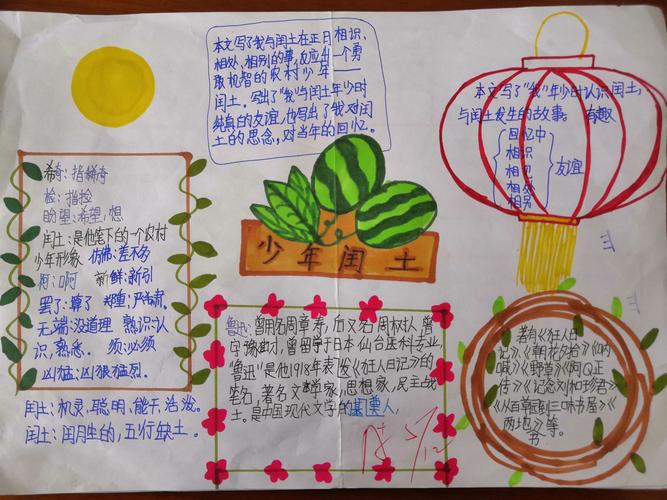 本文写了我与闰土在正月相识、
相处、相别的事,反应出一个勇
敢机智的农村少年——
闰土。写出了"我"与闰土年少时
纯真的友谊,也写出了我对闰
土的思念,对当年的回忆。
本文写了"我"年少时认识闰土,
与闰土发生的故事。 有趣
回忆中
相识
相处
相别
友谊
少年闰土
希奇:指稀奇
检:指捡
盼望:希望,想
闰土:是他笔下的一个农村
少年形象. 仿佛:差不多
阿:啊 新鲜:新引
罢了:算了 郑重:严肃.
无端:没道理 熟识:认
识,熟悉. 须:必须
凶猛:凶狠猛烈.
闰土:机灵,聪明,能干,活泼。
闰土:闰月生的,五行缺土。
鲁迅:曾用名周章寿,后又名周树人,曾
字豫才,曾留学于日本仙台医科专业,
"鲁迅"是他1918年表发《狂人日记》的
笔名,著名文学家,思想家,民主战
士。是中国现代文学的奠基人,
著有《狂人日
记》、《朝花夕拾》《呐
喊》《野草》《阿Q正
传》《记念刘和珍君》
《从百草园到三味书屋》《
两地》等。
书
5/12